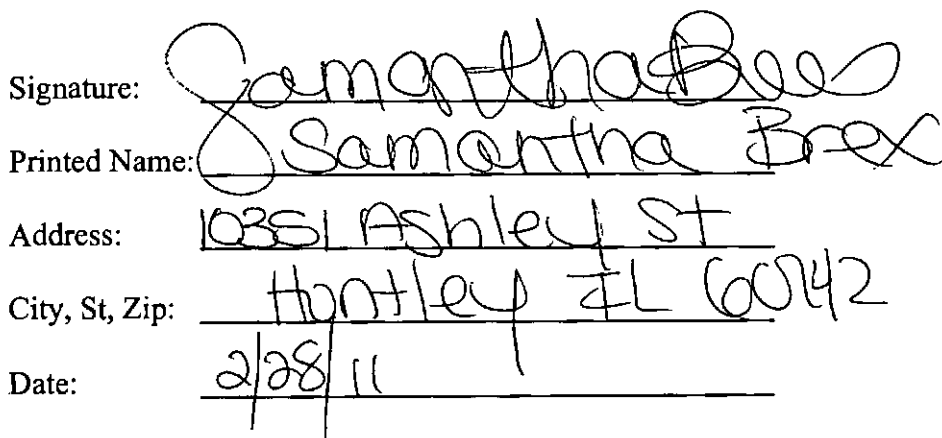 Signature: Samantha Brex
Printed Name: Samantha Brex
Address: 10351 Ashley St
City, St, Zip: Huntley IL 60142
Date: 2/28/11